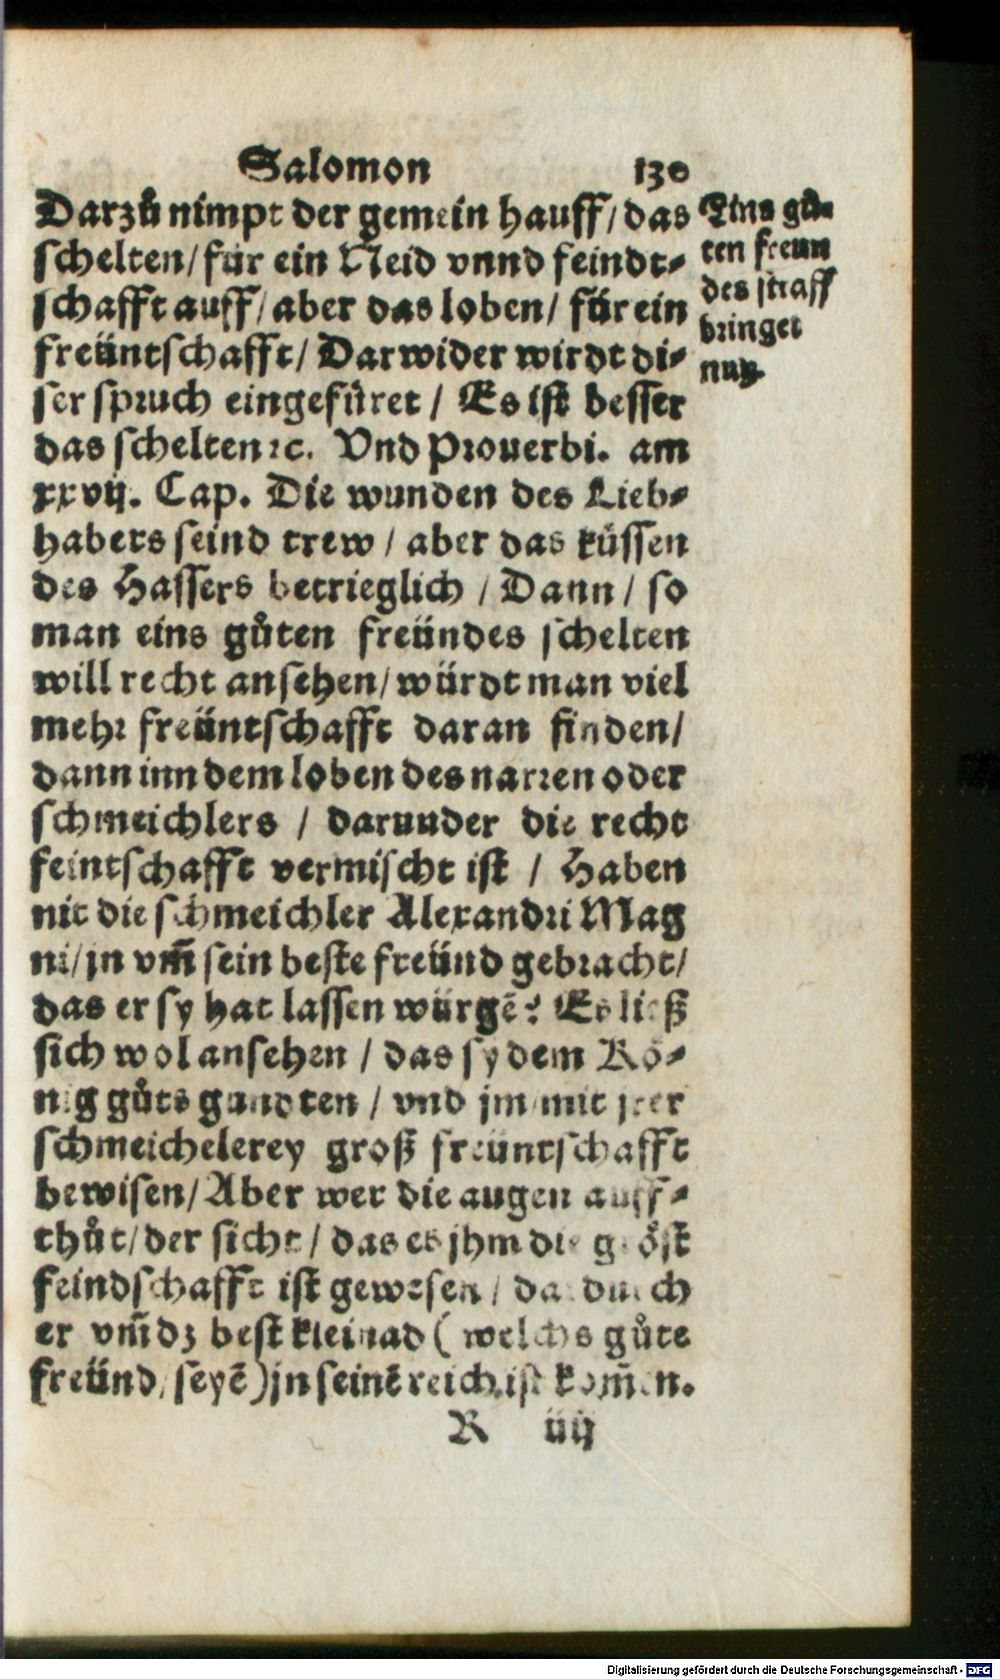 Salomon 130
Darzů nimpt der gemein hauff/das
schelten/für ein Neid vnnd feindt⸗
schafft auff/aber das loben/ für ein
freüntschafft/ Darwider wirdt di⸗
ser spruch eingefüret / Es ist besser
das schelten ꝛc. Vnd Prouerbi. am
xxvij. Cap. Die wunden des Lieb⸗
habers seind trew / aber das küssen
des Hassers betrieglich / Dann / so
man eins gůten freündes schelten
will recht ansehen/würdt man viel
mehr freüntschafft daran finden/
dann inn dem loben des narren oder
schmeichlers / darunder die recht
feintschafft vermischt ist / Haben
nit die schmeichler Alexandri Mag
ni/jn vm̃ sein beste freünd gebracht/
das er sy hat lassen würgẽ? Es ließ
sich wol ansehen / das sy dem Kö⸗
nig gůts gundten / vnd jm mit jrer
schmeichelerey groß freüntschafft
bewisen/Aber wer die augen auff⸗
thůt/der sicht/ das es jhm die gröst
feindschafft ist gewesen / dardurch
er vm̃ dz best kleinad ( welchs gůte
freünd seyẽ)jn seinẽ reich ist kom̃en.
R iiij
Eins gů⸗
ten freun
des straff
bringet
nutz.
Digitalisierung gefördert durch die Deutsche Forschungsgemeinschaft - DFG